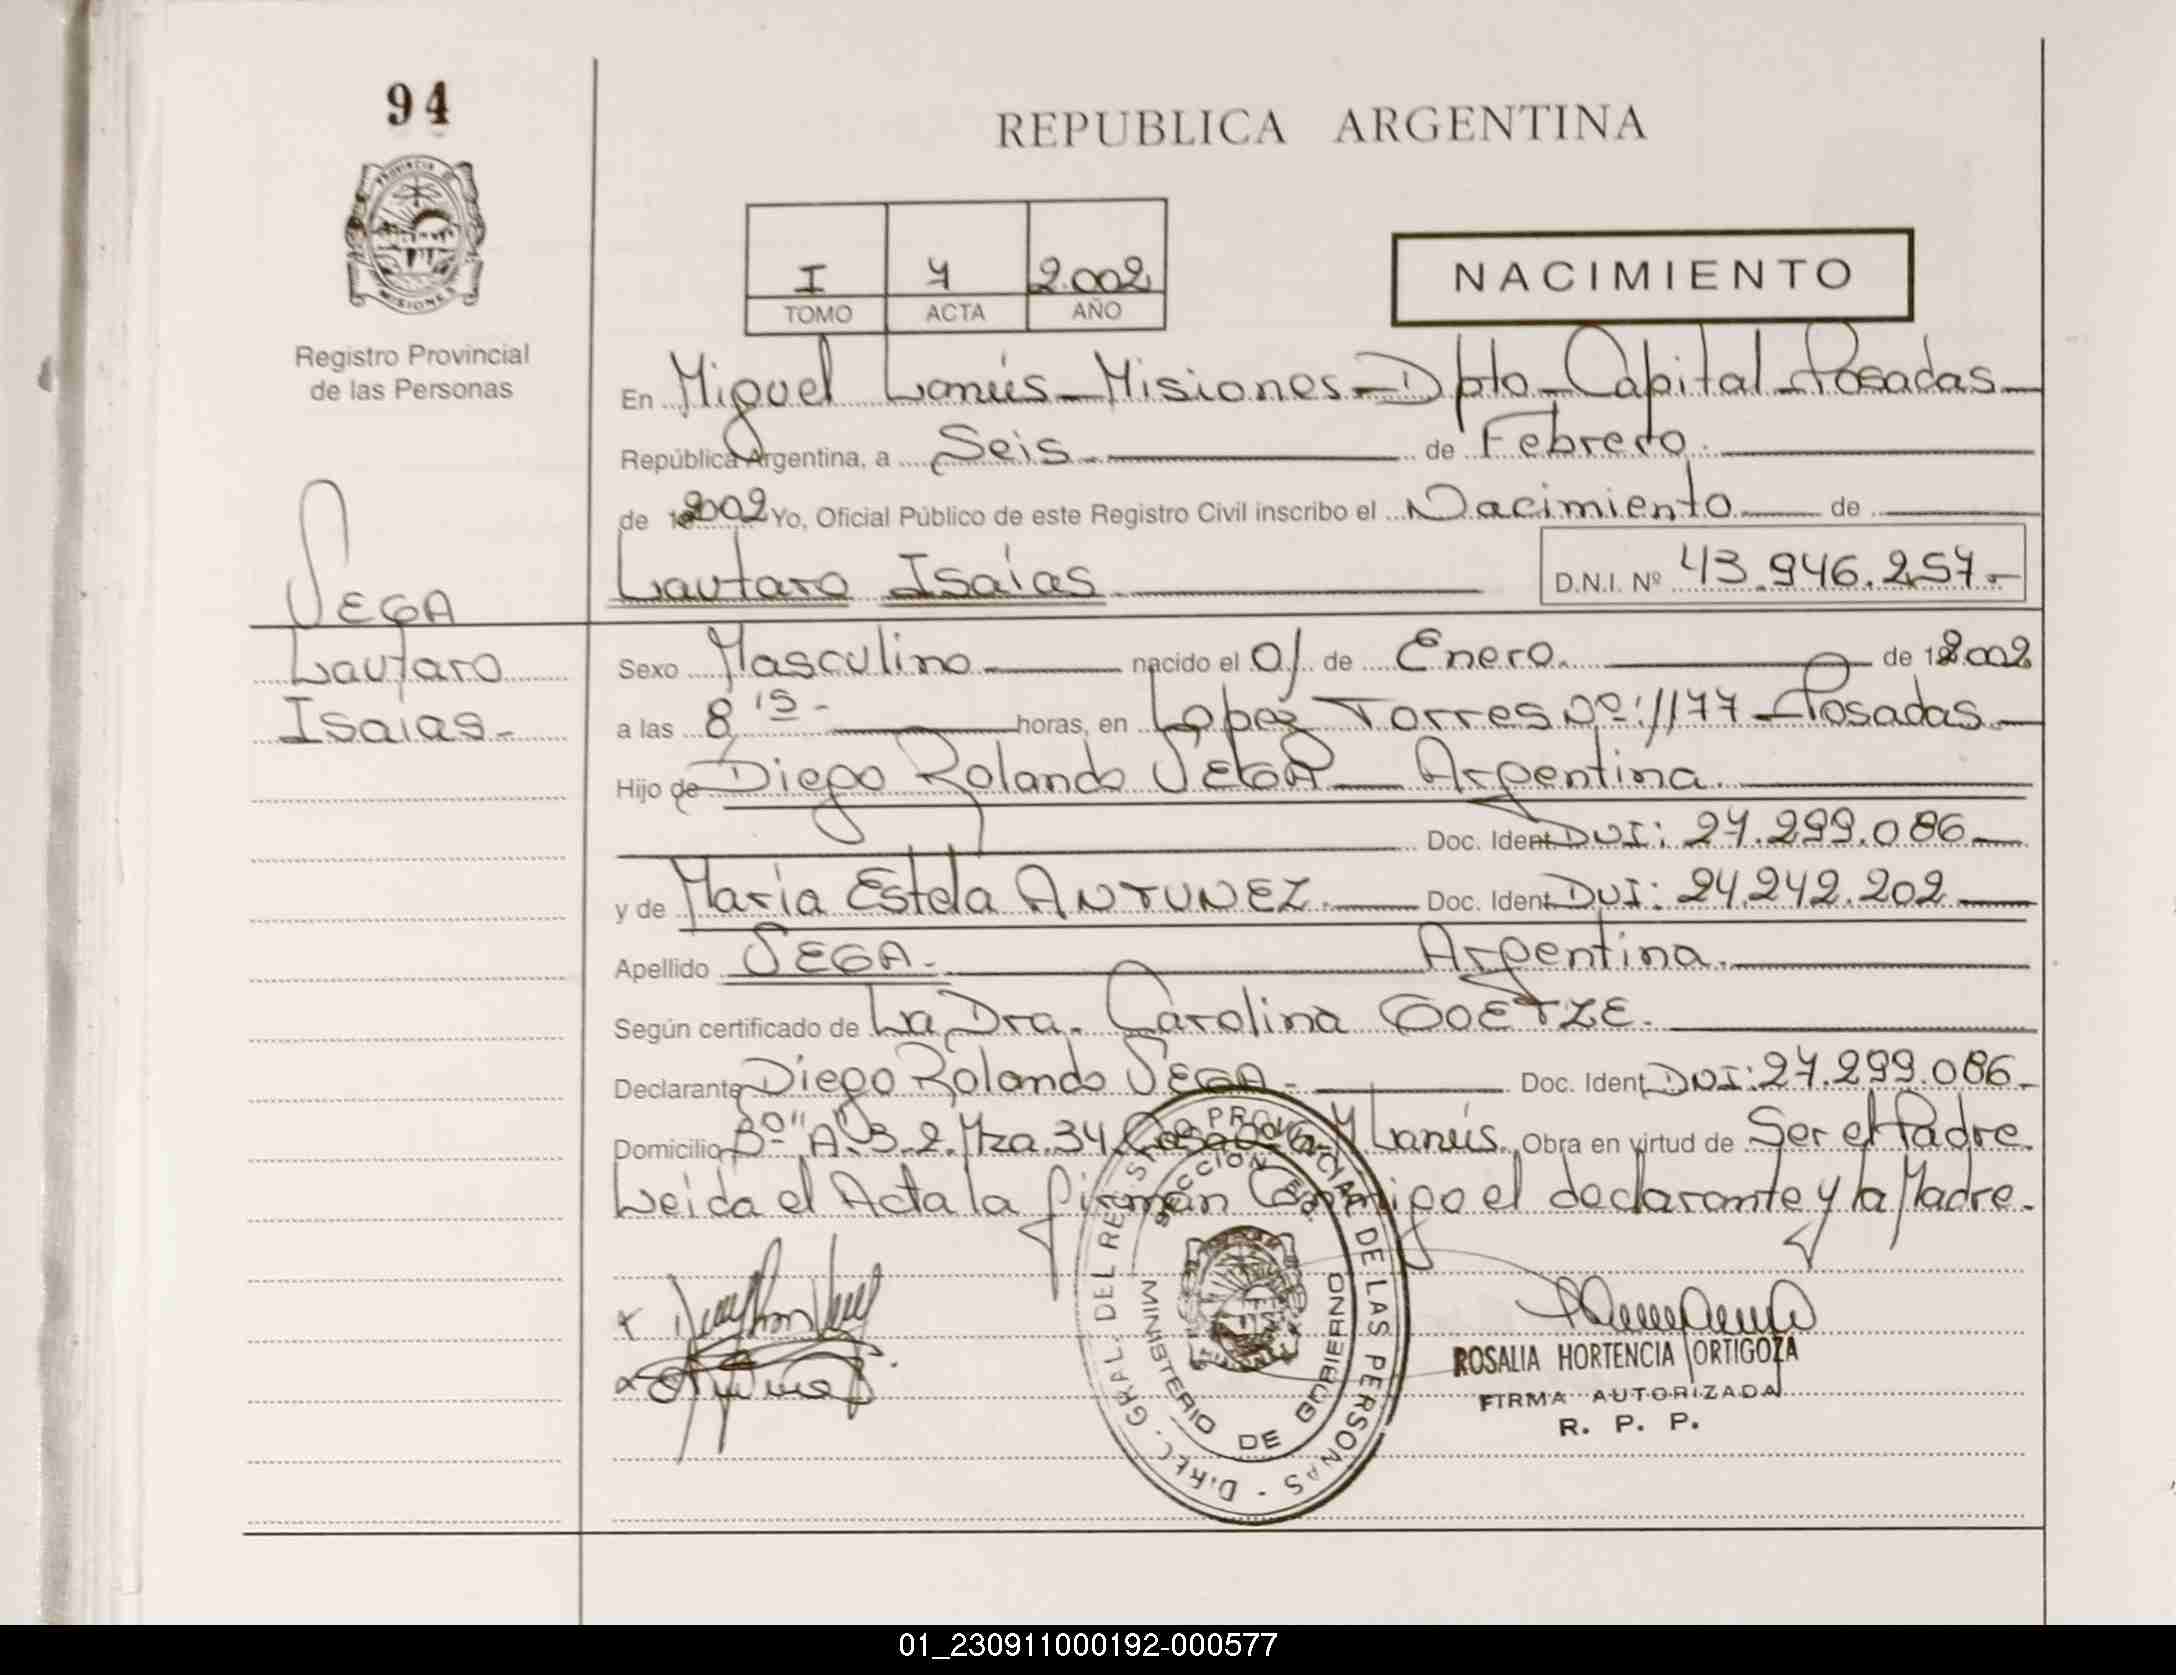 94
REPUBLICA ARGENTINA
PROVINCIA D
MISIONES
Registro Provincial
de las Personas
I 7 2.002
TOMO ACTA AÑO
NACIMIENTO
En Miguel Lanús - Misiones - Dpto - Capital - Posadas
República Argentina, a Seis. de Febrero.
de 2002 Yo, Oficial Público de este Registro Civil inscribo el Nacimiento de
Lautaro Isaías D.N.I. Nº 43.946.257.-
SEGA
Lautaro
Isaias.-
Sexo Masculino nacido el 01 de Enero. de 2.002
a las 8 15 - horas, en Lopez Torres Nº 1177 - Posadas
Hijo de Diego Rolando SEGA - Argentina.
Doc. Ident. DNI: 27.299.086
y de María Estela ANTUNEZ. Doc. Ident. DNI: 24.242.202
Apellido SEGA.- Argentina.
Según certificado de La Dra. Carolina GOETZE.
Declarante Diego Rolando SEGA.- Doc. Ident. DNI: 27.299.086.-
Domicilio Bº "A" 3.2. Mza. 34 Casa Lanús. Obra en virtud de Ser el Padre.
Leída el Acta la firman Conmigo el declarante y la Madre.-
DIREC. GRAL. DEL REGISTRO PROVINCIAL DE LAS PERSONAS -
SECCION
MINISTERIO DE GOBIERNO
ROSALIA HORTENCIA ORTIGOZA
FIRMA AUTORIZADA
R. P. P.
01_230911000192-000577